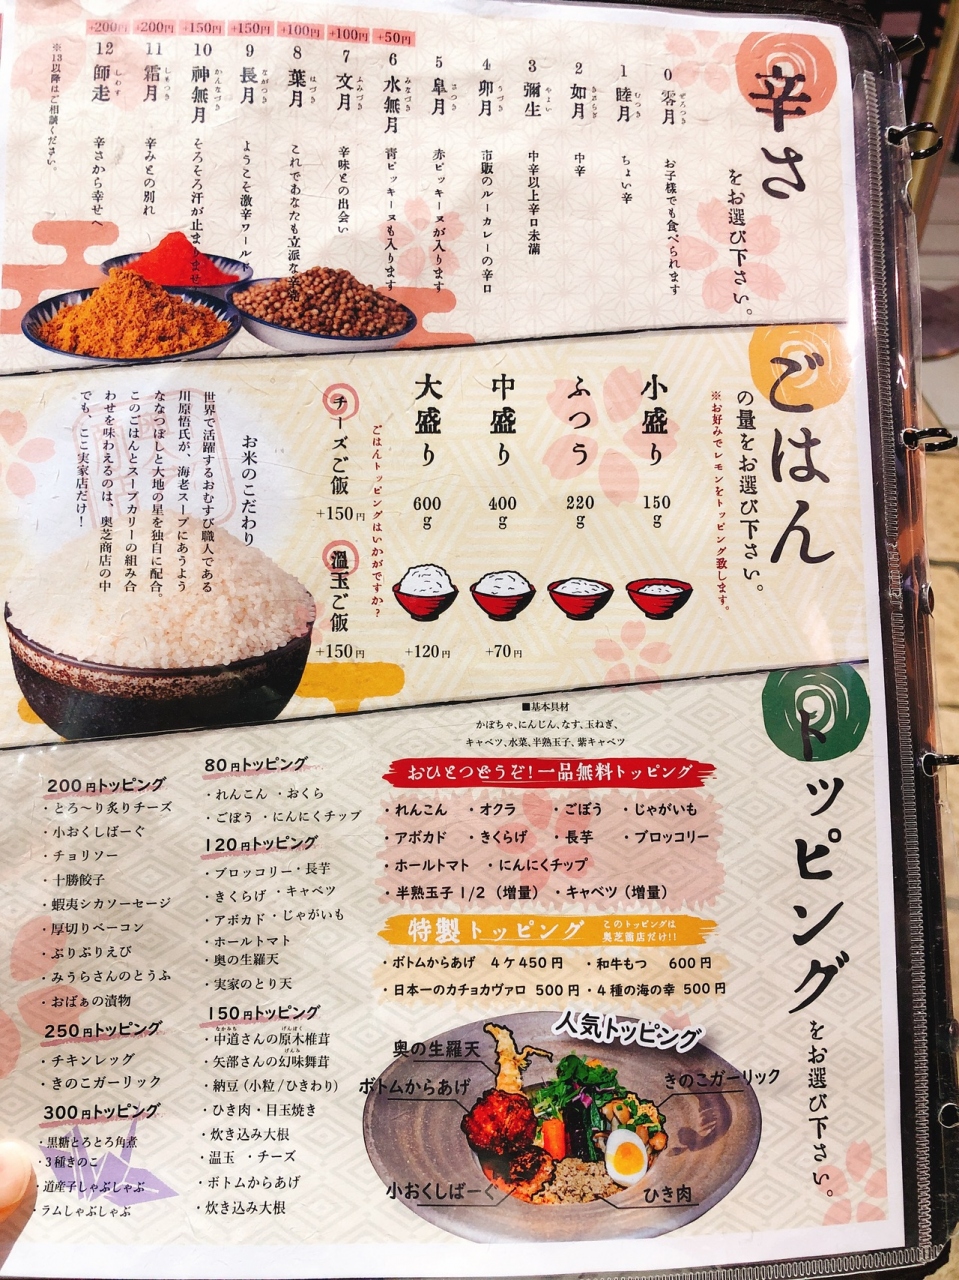 辛さ
をお選び下さい。
0 零月 ぜろつき お子様でも食べられます
1 睦月 むつき ちょい辛
2 如月 きさらぎ 中辛
3 彌生 やよい 中辛以上辛口未満
4 卯月 うづき 市販のルーカレーの辛口
5 皐月 さつき 赤ピッキーヌが入ります
+50円
6 水無月 みなづき 青ピッキーヌも入ります
+100円
7 文月 ふみづき 辛味との出会い
+100円
8 葉月 はづき これであなたも立派な
+150円
9 長月 ながつき ようこそ激辛ワールド
+150円
10 神無月 かんなづき そろそろ汗が止まりませ
+200円
11 霜月 しもつき 辛みとの別れ
+200円
12 師走 しわす 辛さから幸せへ
※13以降はご相談ください。
ごはん
の量をお選び下さい。
※お好みでレモンをトッピング致します。
小盛り 150g
ふつう 220g
中盛り 400g +70円
大盛り 600g +120円
ごはんトッピングはいかがですか？
チーズご飯 +150円
温玉ご飯 +150円
お米のこだわり
世界で活躍するおむすび職人である
川原悟氏が、海老スープにあうよう
ななつぼしと大地の星を独自に配合。
このごはんとスープカリーの組み合
わせを味わえるのは、奥芝商店の中
でも、ここ実家店だけ！
トッピング
をお選び下さい。
■基本具材
かぼちゃ、にんじん、なす、玉ねぎ、
キャベツ、水菜、半熟玉子、紫キャベツ
おひとつどうぞ！一品無料トッピング
・れんこん ・オクラ ・ごぼう ・じゃがいも
・アボカド ・きくらげ ・長芋 ・ブロッコリー
・ホールトマト ・にんにくチップ
・半熟玉子 1/2（増量） ・キャベツ（増量）
特製トッピング
このトッピングは
奥芝商店だけ!!
・ボトムからあげ 4ケ450円 ・和牛もつ 600円
・日本一のカチョカヴァロ 500円 ・4種の海の幸 500円
人気トッピング
奥の生羅天
ボトムからあげ
きのこガーリック
小おくしばーぐ
ひき肉
80円トッピング
・れんこん ・おくら
・ごぼう ・にんにくチップ
120円トッピング
・ブロッコリー ・長芋
・きくらげ ・キャベツ
・アボカド ・じゃがいも
・ホールトマト
・奥の生羅天
・実家のとり天
150円トッピング
・中道さんの原木椎茸 なかみち げんぼく
・矢部さんの幻味舞茸 げんみ
・納豆（小粒/ひきわり）
・ひき肉 ・目玉焼き
・炊き込み大根
・温玉 ・チーズ
・ボトムからあげ
・炊き込み大根
200円トッピング
・とろ〜り炙りチーズ
・小おくしばーぐ
・チョリソー
・十勝餃子
・蝦夷シカソーセージ
・厚切りベーコン
・ぷりぷりえび
・みうらさんのとうふ
・おばぁの漬物
250円トッピング
・チキンレッグ
・きのこガーリック
300円トッピング
・黒糖とろとろ角煮
・3種きのこ
・道産子しゃぶしゃぶ
・ラムしゃぶしゃぶ